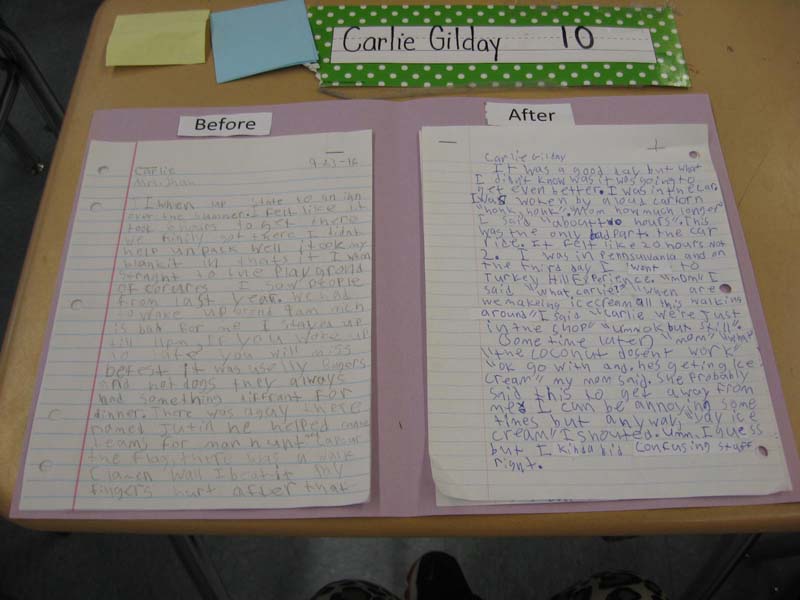 Carlie Gilday 10
Before
9-23-16
Carlie
Mrs.
I When up state to an inn
over the summer. I felt like it
took 6 hours to get there
we finily got there I didnt
help unpack well i took my
blankit but thats it I whan
streaght to the playgrould
of corurrs I saw people
from last year. we had
to wake up arond 9am mich
is bad for me I stayed up
till 11pm, If you woke up
to late you will miss
brefest it was uselly burgers
and hot dogs they always
had something diffrant for
dinner. There was a guy there
named Jutin he helped
teams for man hunt
the flag, there was a
wall I beat it my
fingers hurt after that
After
Carlie Gilday
It was a good day but what
I didn't know was it was going to
get even better. I was in the car
I was woken by a loud car horn
"honk, honk". "Mom how much longer"
I said "about two hours". This
was the only bad parts the car
ride. It felt like 20 hours not
2. I was in Pennsuwania and on
the third day I want to
Turkey Hill Experience. "mom" I
said "what carlie" "when are
we makeing icecream all this walking
around" I said "carlie we're just
in the shop" "umm ok but still".
Some time later, "mom" "what"
"the coconut dosent work"
"ok go with and, hes geting ice
cream" my mom said. She probably
said this to get away from
me I can be annoying some
times but anyway, "yay ice
cream" I shouted. Umm. I guess
but I kinda did confusing stuff
right.